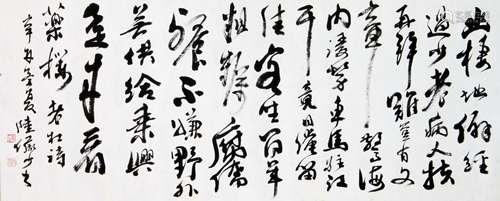 幽棲地僻經
過少老病人扶
再拜難豈有文
章驚海
内漫勞車馬駐江
干竟日淹留
佳客坐百年
粗糲腐儒
餐不嫌野外
無供給乘興
還來看
藥欄 老杜詩
辛 夏陸儼少書